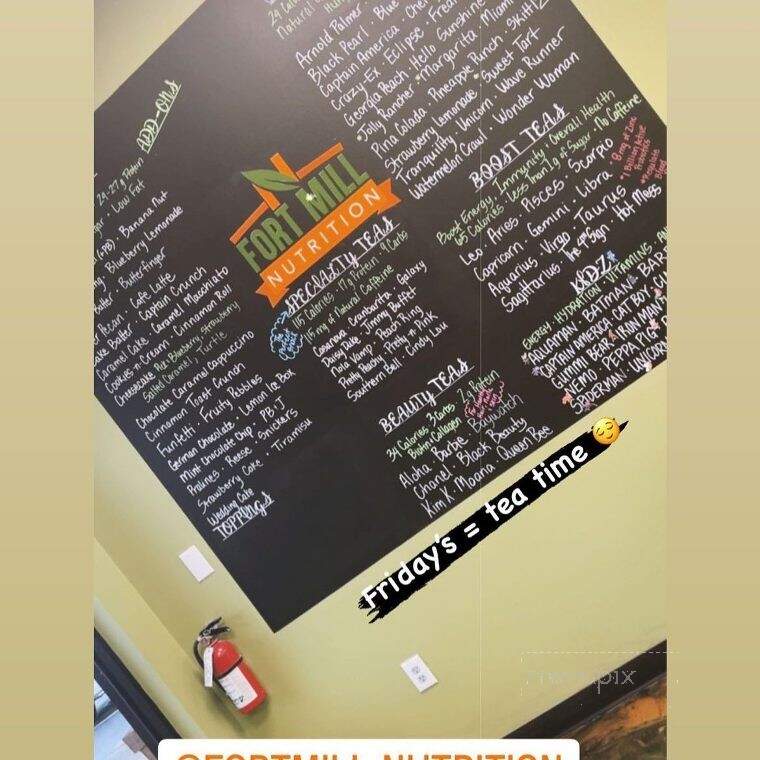 24 Calo
Natural
Arnold Palmer · Blue
Black Pearl ·
Captain America · Cher
Crazy-Ex · Eclipse · Frea
Georgia Peach · Hello Sunshine
Jolly Rancher · Margarita · Miami
Pina Colada · Pineapple Punch · Skittlz
Strawberry Lemonade · Sweet Tart
Tranquility · Unicorn · Wave Runner
Watermelon Crawl · Wonder Woman
ADD-ONS
24-27g Protein
gar · Low Fat
Banana Nut
Blueberry Lemonade
Butterfinger
Pecan · Cafe Latte
Cake Batter · Captain Crunch
Caramel Cake · Caramel Macchiato
Cookies-n-Cream · Cinnamon Roll
Cheesecake Blueberry, Strawberry
Salted Caramel, Turtle
Chocolate Caramel Cappuccino
Cinnamon Toast Crunch
Funfetti · Fruity Pebbles
German Chocolate · Lemon Ice Box
Mint Chocolate Chip · PB&J
Pralines · Reese · Snickers
Strawberry Cake · Tiramisu
Wedding Cake
TOPPINGS
FORT MILL
NUTRITION
SPECIALTY TEAS
115 Calories · 17g Protein · 9 Carbs
115 mg of Natural Caffeine
Casanova · Cranbertra · Galaxy
Daisy Duke · Jimmy Buffet
Mia Vamp · Peach Ring
Pretty Peachy · Pretty n Pink
Southern Bell · Cindy Lou
BOOST TEAS
Boost Energy · Immunity · Overall Health
65 Calories · Less Than 1g of Sugar · No Caffeine
8 mg of Zinc
1 Billion Active
Probiotics
Regulate
Blood
Leo · Aries · Pisces · Scorpio
Capricorn · Gemini · Libra
Aquarius · Virgo · Taurus
Sagittarius · The 4th Sign · Hot Mess
KIDZ
ENERGY · HYDRATION · VITAMINS, AN
AQUAMAN · BATMAN · BAR
CAPTAIN AMERICA · CATBOY
GUMMI BEER · IRON MAN
NEMO · PEPPA PIG
SPIDERMAN · UNICORN
BEAUTY TEAS
34 Calories 3 Carbs 2g Protein
Biotin · Collagen
Aloha · Barbie · Baywatch
Chanel · Black Beauty
Kim K · Moana · Queen Bee
Friday's = tea time 😌
@FORTMILL_NUTRITION